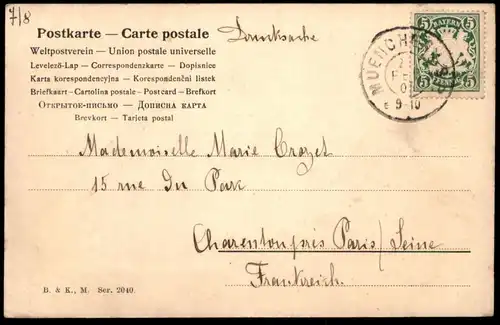 7/8
Postkarte — Carte postale
Drucksache
Weltpostverein — Union postale universelle
Levelező-Lap — Correspondenzkarte — Dopisnice
Karta korespondencyjna — Korespondenční listek
Briefkaart — Cartolina postale — Postcard — Brefkort
Открытое-письмо — Дописна карта
Brevkort — Tarjeta postal
5 BAYERN 5
5 5
MUENCHEN
9-10
Mademoiselle Marie Crozet
15 rue Du Parc
Charenton près Paris/Seine
Frankreich.
B. & K., M. Ser. 2040.